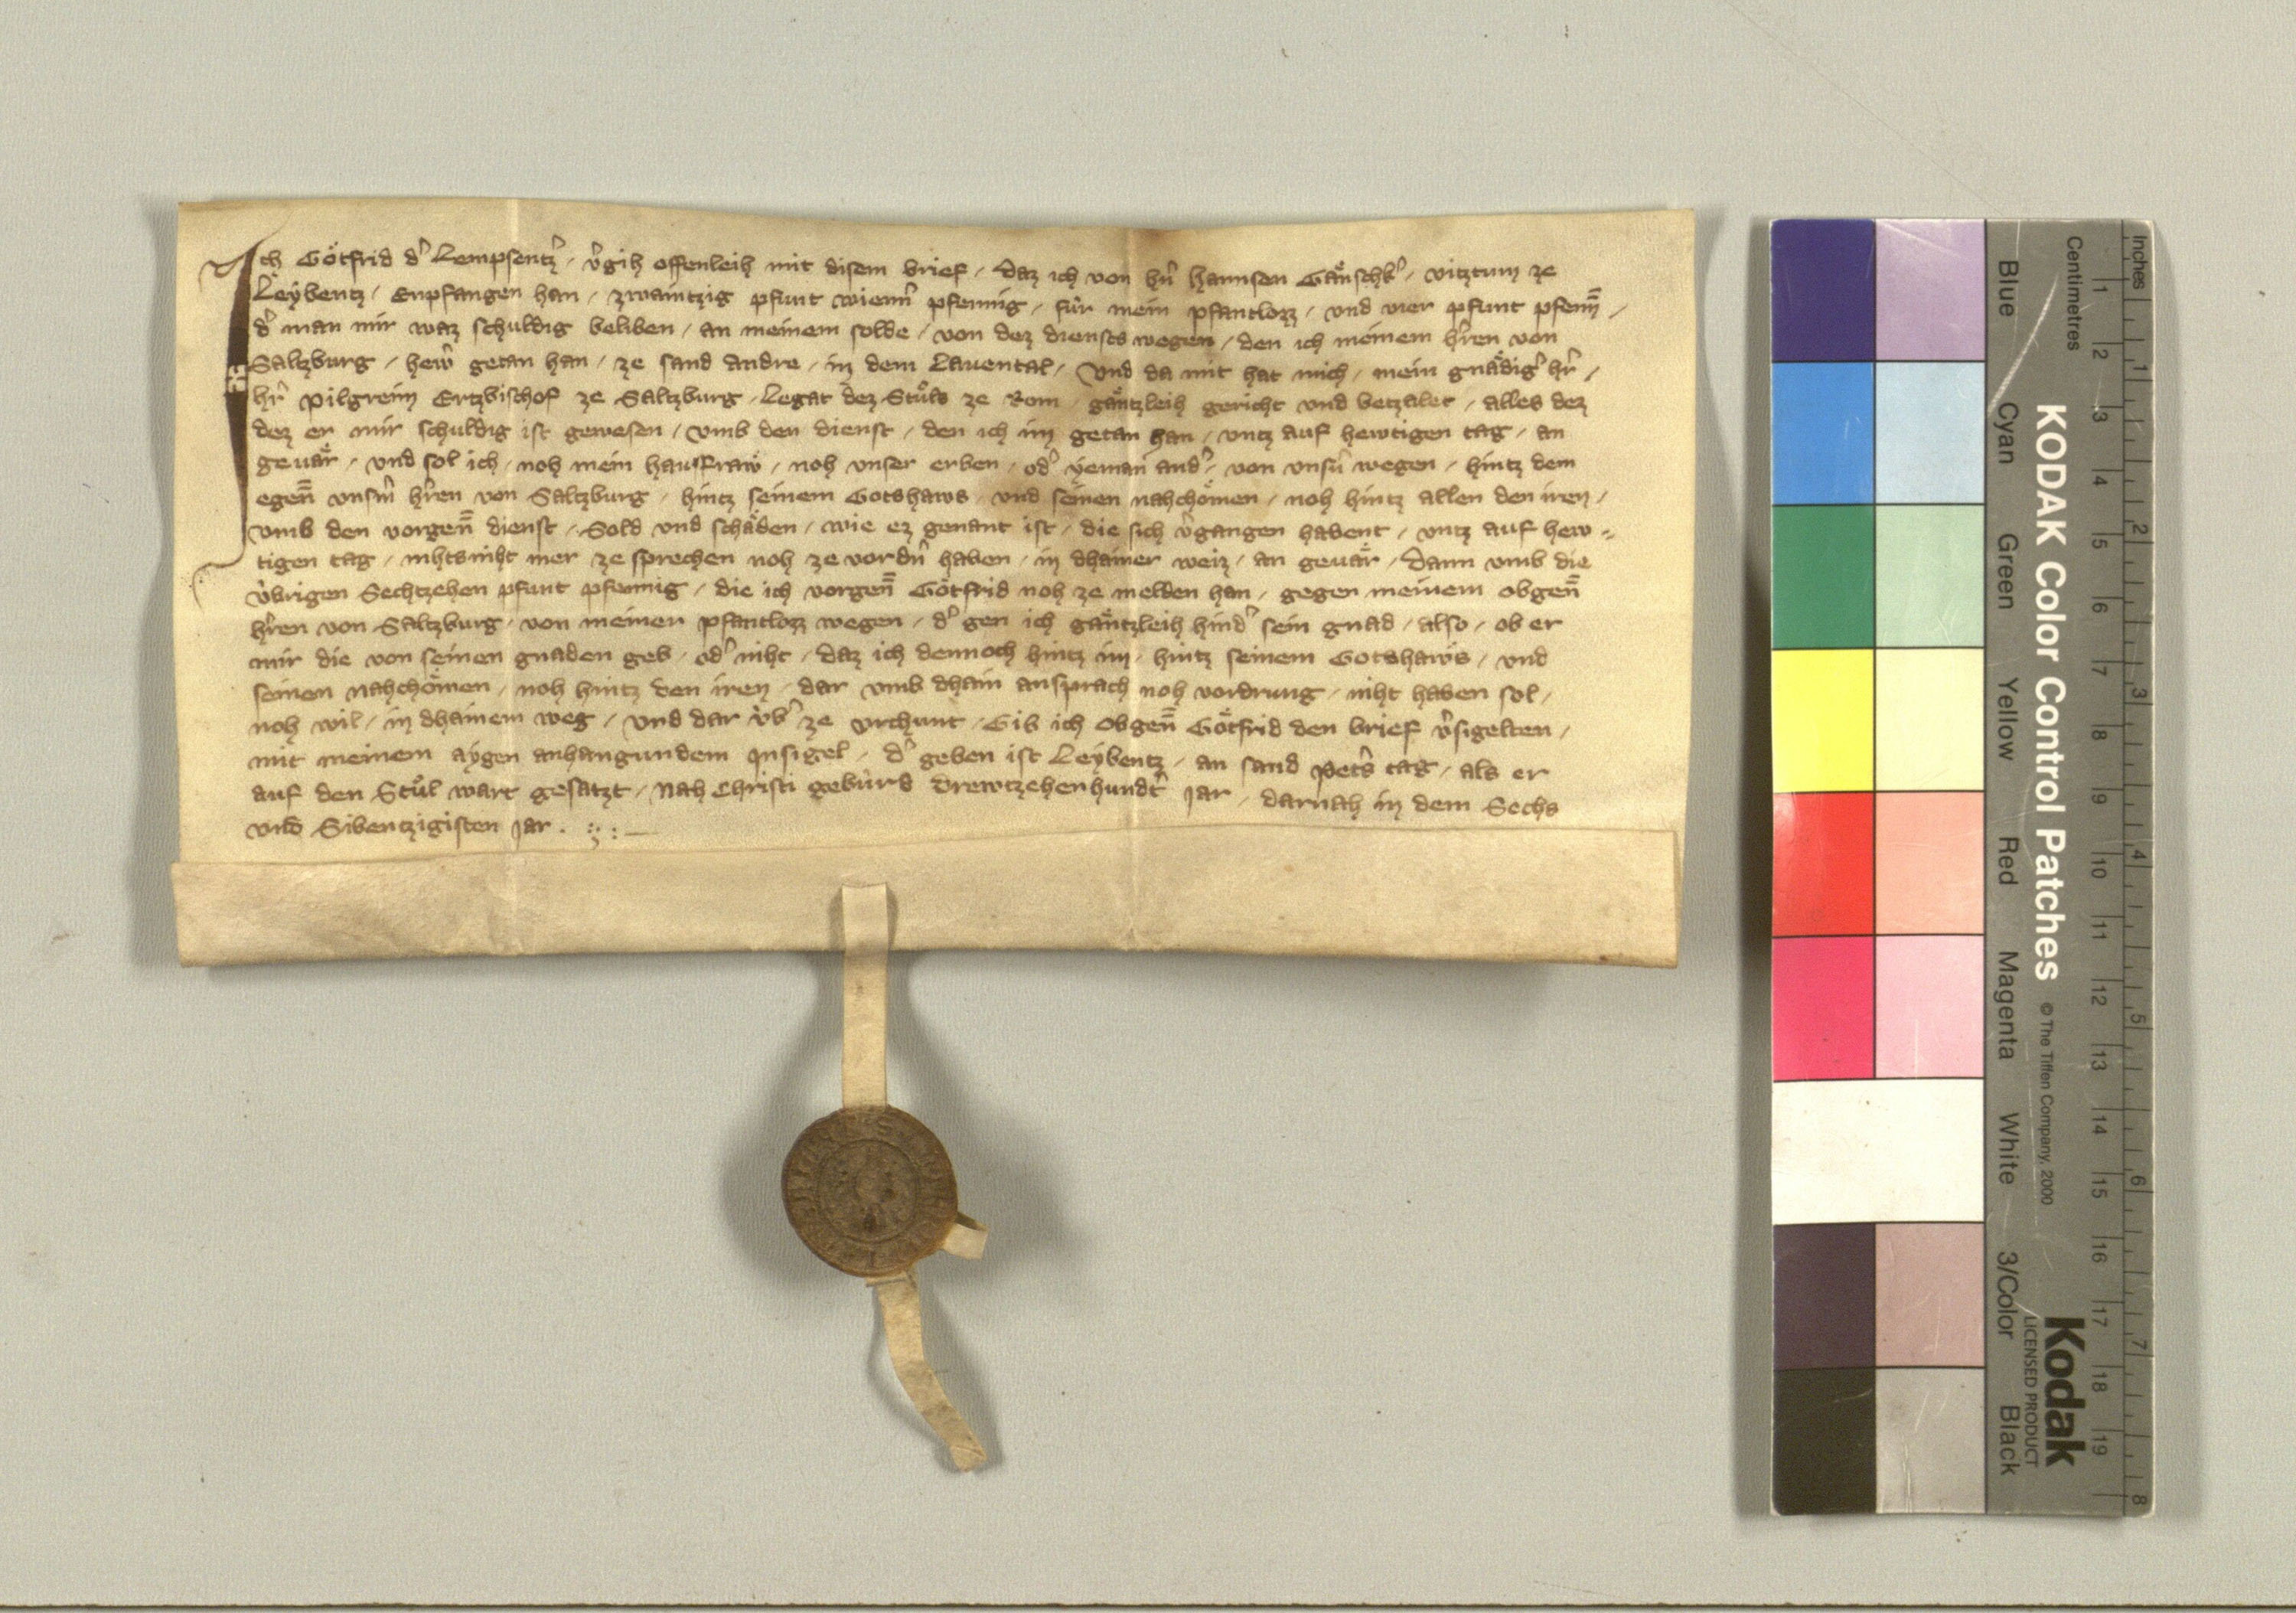 Ich Götfrid d᾽ Lempsentz᾽, v᾽gih offenleih mit disem brief, daz ich von hn᾽ Hannsen Gänschk᾽, vitztum ze
Leybentz, Enpfangen han, zwaintzig pfunt wienn᾽ pfennig, für mein pfantlozz, und vier pfunt pfenn̄,
d᾽ man mir waz schuldig beliben, an meinem solde, von dez diensts wegen, den ich meinem hr᾽ren von
Saltzburg, hew᾽ getan han, ze sand Andre, in dem Lauental, Und da mit hat mich, mein gnädig᾽ hr᾽,
hr᾽ Pilgreim Ertzbischof ze Saltzburg, Legat dez Stůls ze Rom, gäntzleih gericht und betzalet, alles dez
dez er mir schuldig ist gewesen, vmb den dienst, den ich im getan han, vntz auf hewtigen tag, an
geuär, und sol ich, noh mein hausfraw, noh unser erben, od᾽ yeman and᾽, von vns᾽n wegen, hintz dem
egen̄ vnsm᾽ hr᾽ren von Saltzburg, hintz seinem Gotshaws, und seinen nahchömen, noh hintz allen den iren,
vmb den vorgen̄ dienst, Sold und schäden, wie ez genant ist, die sich v᾽gangen habent, vntz auf hew-
tigen tag, nihtsniht mer ze sprechen noh ze vordn᾽ haben, in dhainer weiz, an geuär, Dann vmb die
übrigen Sechtzehen pfunt pfennig, die ich vorgen̄ Götfrid noh ze melden han, gegen meinem obgen̄
hr᾽ren von Saltzburg, von meinen pfantlozz wegen, d᾽ gen ich gäntzleih hind᾽ sein gnad, also, ob er
mir die von seinen gnaden geb, od᾽ niht, daz ich dennoch hintz im, hintz seinem Gotshaws, und
seinen nahchömen, noh hintz den iren, dar vmb dhain ansprach noh vordrung, niht haben sol,
noh wil, in dhainem weg, und dar üb᾽ ze vrchunt, Gib ich obgen̄ Götfrid den brief v᾽sigelten,
mit meinem aygen anhangundem Insigel, d᾽ geben ist Leybentz, an sand Pet᾽s tag, als er
auf den Stůl wart gesätzt, Nah Christi gebürd Drewtzehenhundt᾽ Jar, darnah in dem Sechs
und Sibentzigisten Jar.
KODAK Color Control Patches © The Tiffen Company, 2000
Kodak
LICENSED PRODUCT
Blue Cyan Green Yellow Red Magenta White 3/Color Black
Centimetres 1 2 3 4 5 6 7 8 9 10 11 12 13 14 15 16 17 18 19
Inches 1 2 3 4 5 6 7 8